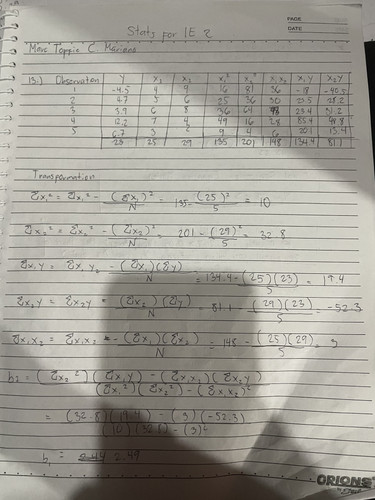 PAGE
DATE
Stats for IE 2
Mary Toppie C Mariano
13.) Observation Y X₁ X₂ X₁² X₂² X₁X₂ X₁Y X₂Y
1 -4.5 4 9 16 81 36 -18 -40.5
2 4.7 5 6 25 36 30 23.5 28.2
3 3.9 6 8 36 64 48 23.4 31.2
4 12.2 7 4 49 16 28 85.4 48.8
5 6.7 3 2 9 4 6 20.1 13.4
23 25 29 135 201 148 134.4 81.1
Transformation
Σx₁² = Σx₁² - (Σx₁)² / N = 135 - (25)² / 5 = 10
Σx₂² = Σx₂² - (Σx₂)² / N = 201 - (29)² / 5 = 32.8
Σx₁y = Σx₁y - (Σx₁)(Σy) / N = 134.4 - (25)(23) / 5 = 19.4
Σx₂y = Σx₂y - (Σx₂)(Σy) / N = 81.1 - (29)(23) / 5 = -52.3
Σx₁x₂ = Σx₁x₂ - (Σx₁)(Σx₂) / N = 148 - (25)(29) / 5 = 3
= (32.8)(19.4) - (3)(-52.3) / (10)(32.8) - (3)²
b₁ = 2.49
ORIONS